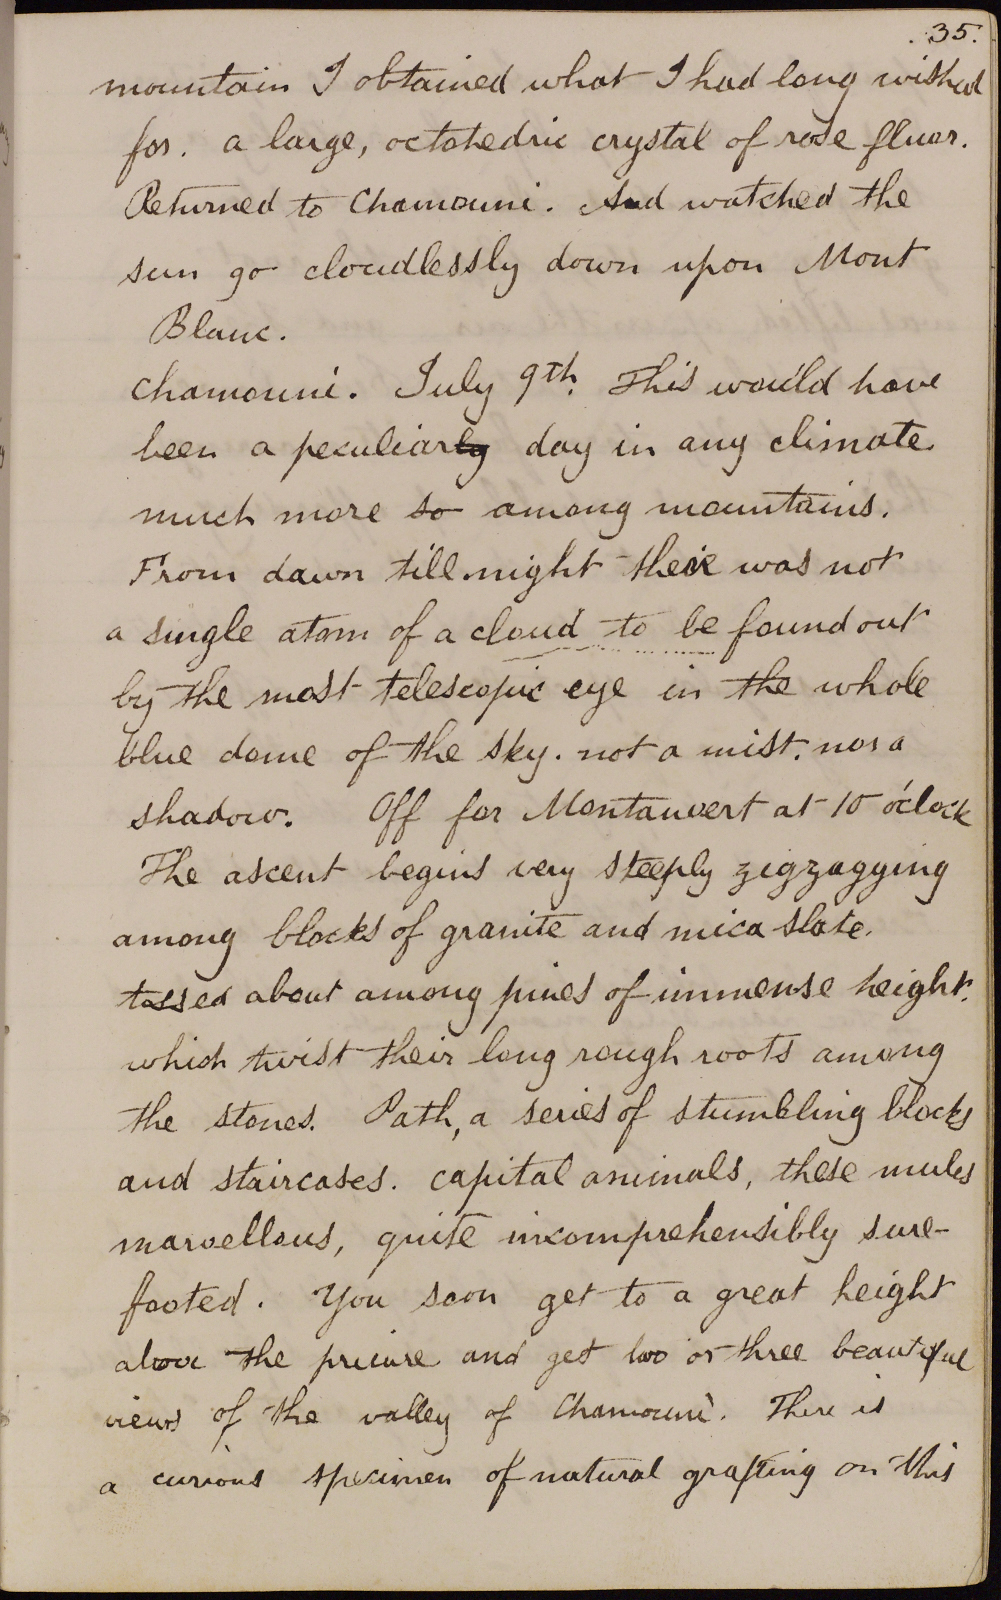 35.
mountain I obtained what I had long wished
for. a large, octohedric crystal of rose fluor.
Returned to Chamouni. And watched the
sun go cloudlessly down upon Mont
Blanc.
Chamouni. July 9th. This would have
been a peculiarly day in any climate
much more so among mountains.
From dawn till night there was not
a single atom of a cloud to be found out
by the most telescopic eye in the whole
blue dome of the sky. not a mist. nor a
shadow. Off for Montanvert at 10 o'clock
The ascent begins very steeply zigzagging
among blocks of granite and mica slate.
tossed about among pines of immense height.
which twist their long rough roots among
the stones. Path, a series of stumbling blocks
and staircases. capital animals, these mules
marvellous, quite incomprehensibly sure-
footed. You soon get to a great height
above the and get two or three beautiful
views of the valley of Chamouni. There is
a curious specimen of natural grafting on this